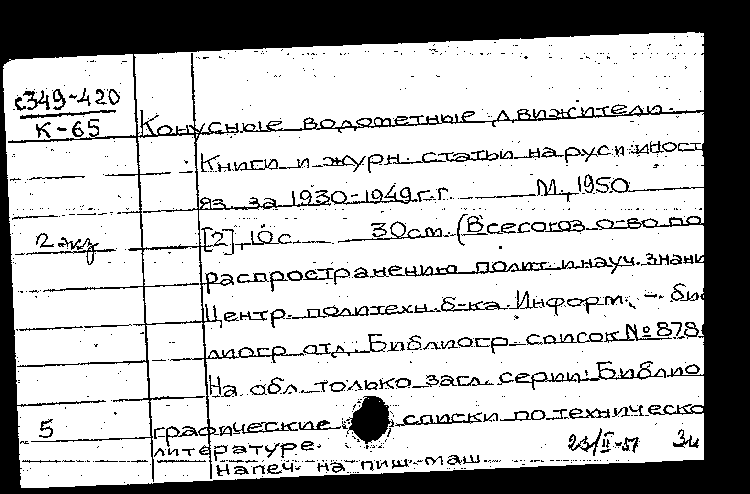 с349-420
К-65
Конусные водометные движители.
Книги и журн. статьи на рус и иност
яз. за 1930-1949 г.г. М., 1950
2 экз
[2], 10 с. 30 см. (Всесоюз. о-во по
распространению полит. и науч. знани
Центр. политехн. б-ка. Информ. - биб
лиогр отд. Библиогр. список № 878
На обл. только загл. серии: Библио
5
графические списки по техническо
литературе.
23/II-51 Зи
Напеч. на пиш. маш.